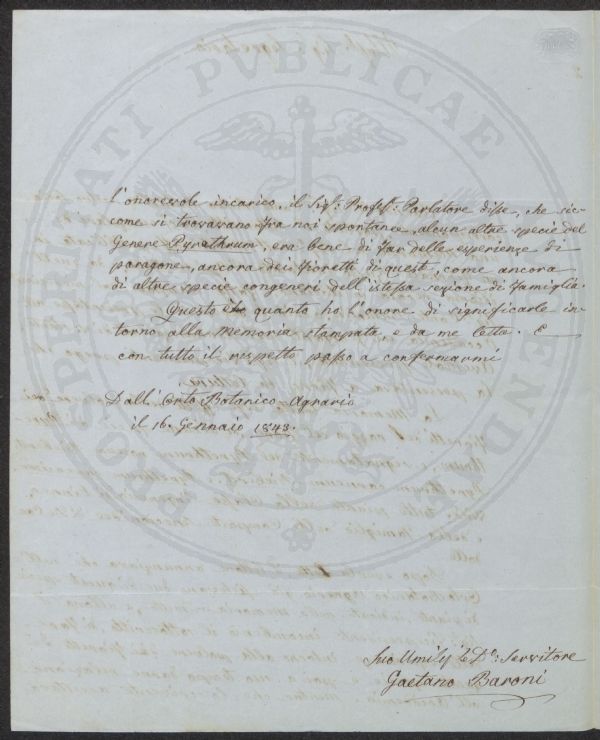 PROSPERITATI PUBLICAE AUGENDAE
l'onorevole incarico, il Sig:r Profess:r Parlatore disse, che sic-
come si trovavano fra noi spontanee, alcun altre specie del
Genere Pyrethrum, era bene di far delle esperienze di
paragone, ancora dei Fioretti di questi, come ancora
di altre specie congeneri dell'istessa sezione di famiglia.
Questo è quanto ho l'onore di significarle in-
torno alla Memoria stampata, e da me letta. E
con tutto il rispetto passo a confermarmi
Dall'Orto Botanico-Agrario
il 16. Gennaio 1843.
Suo Umil: e D: Servitore
Gaetano Baroni